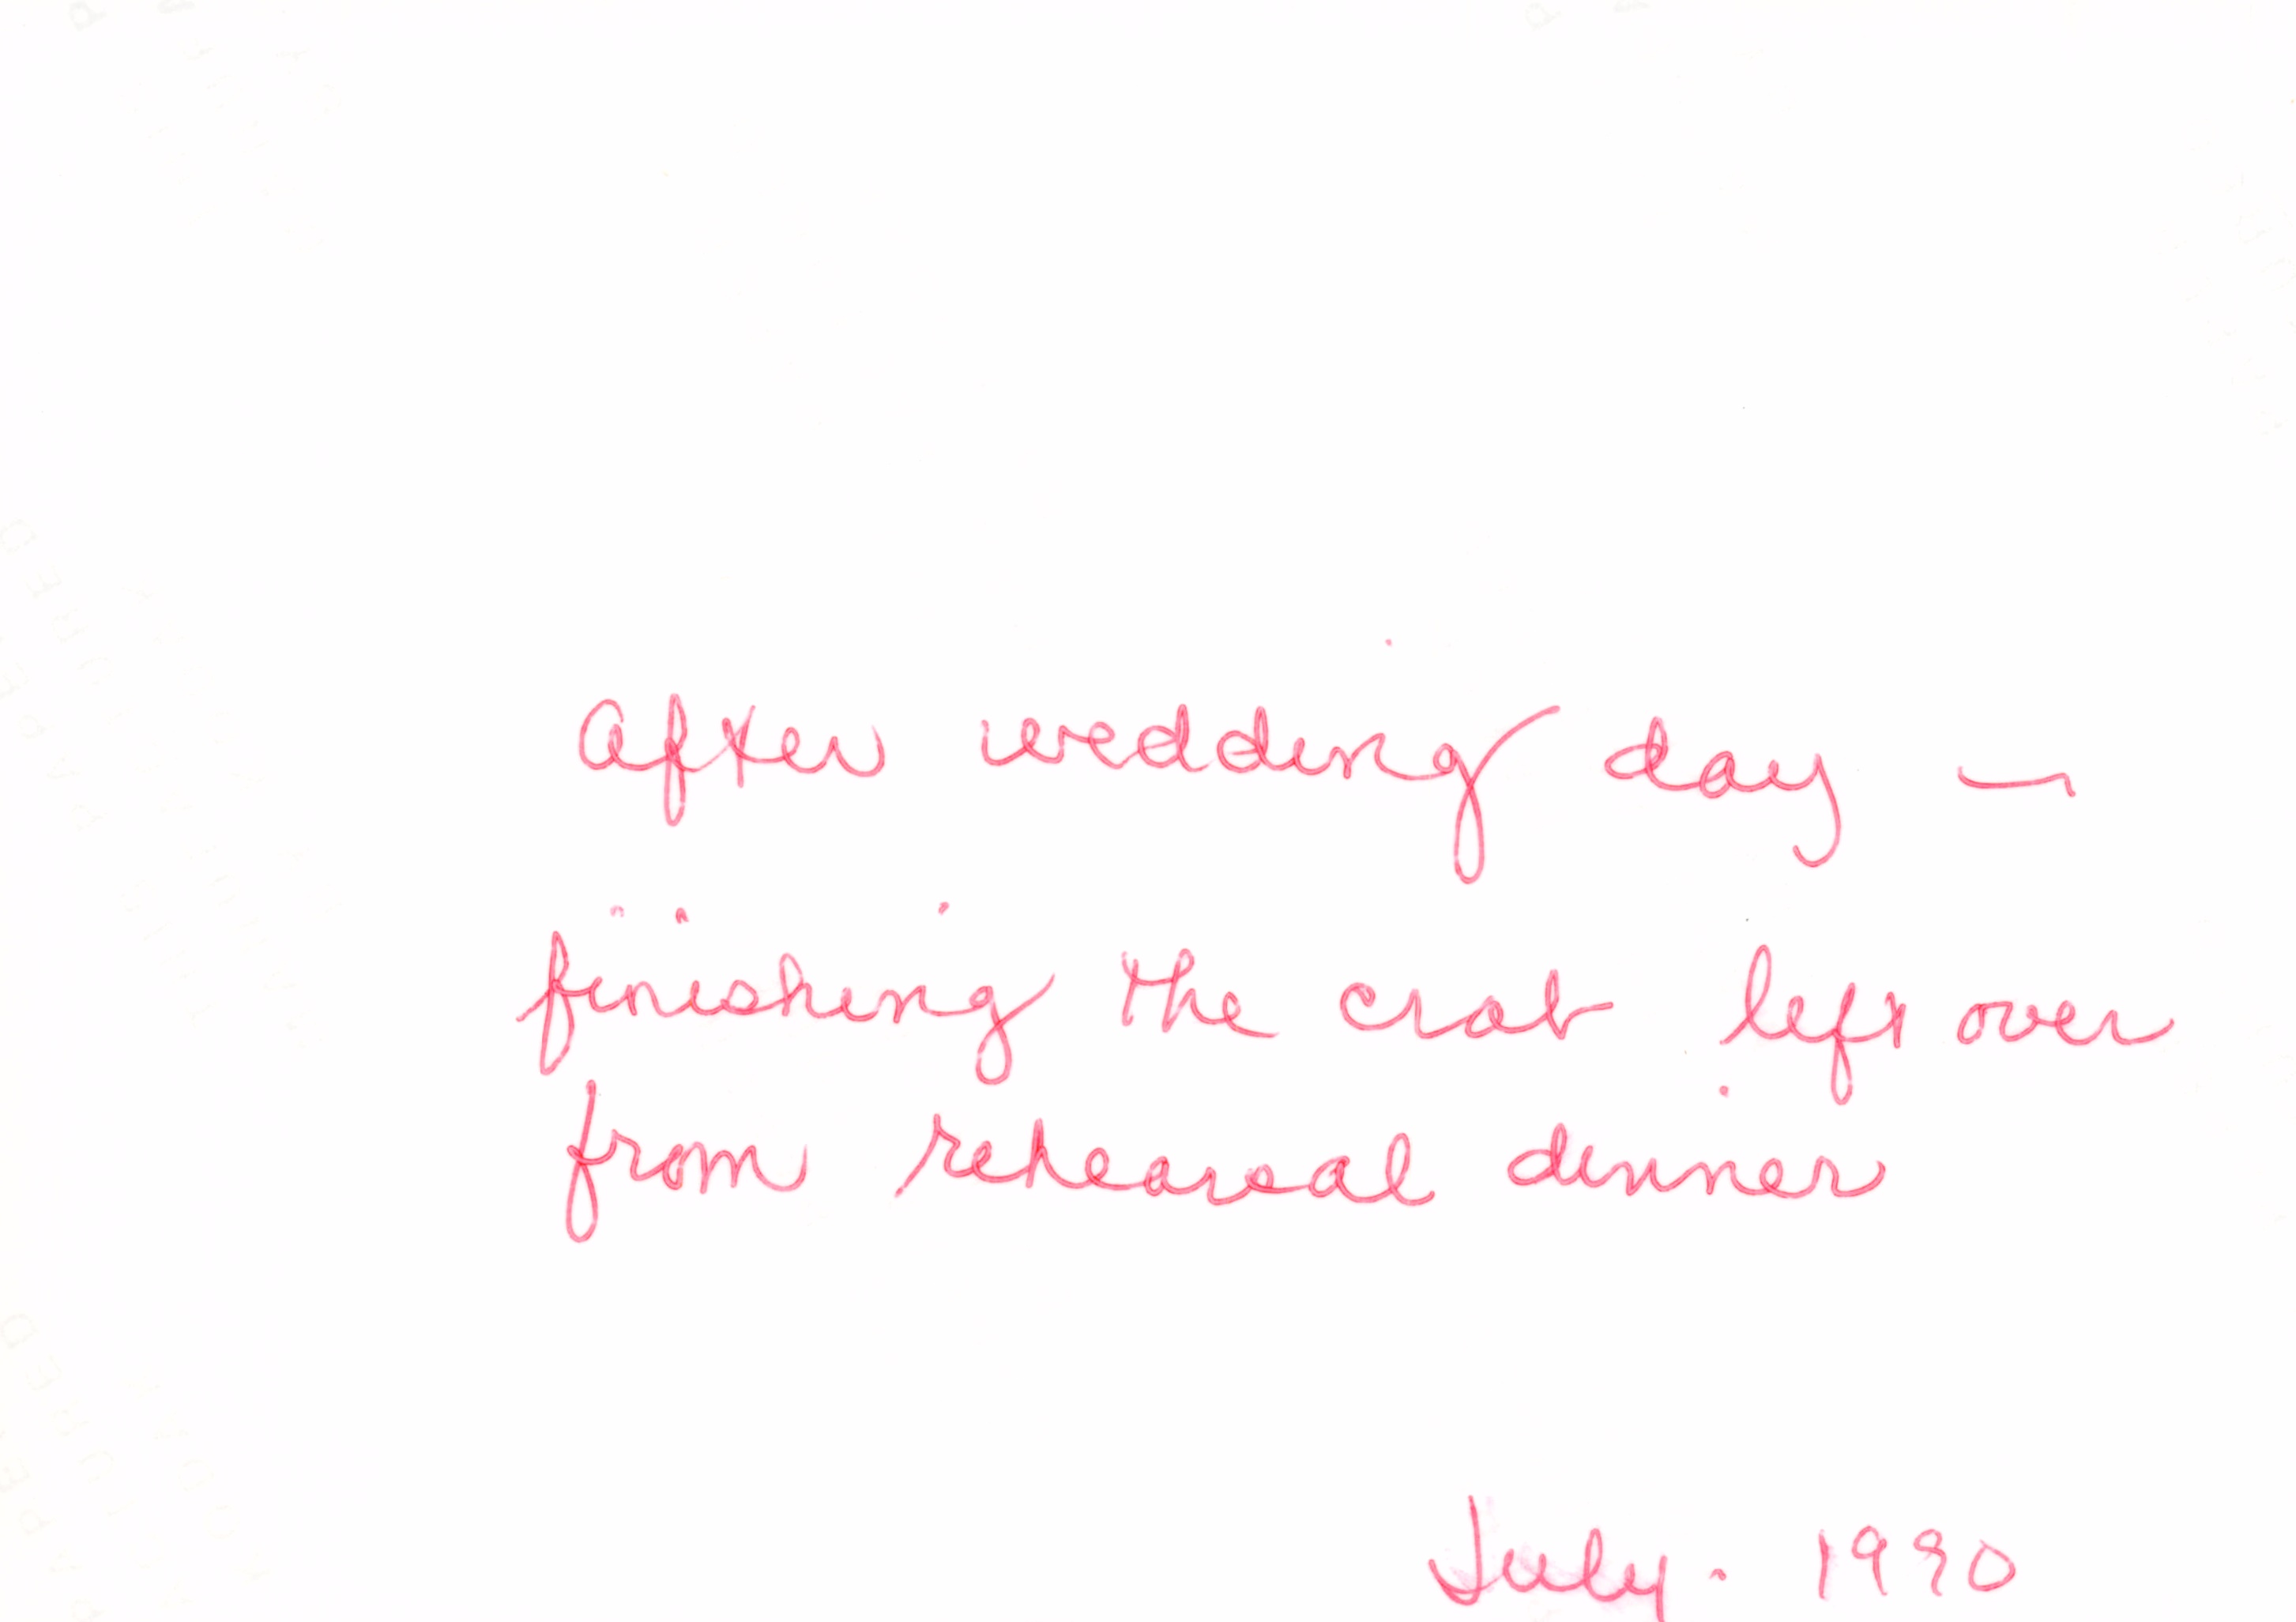 After wedding day —
finishing the crab left over
from rehearsal dinner
July. 1990